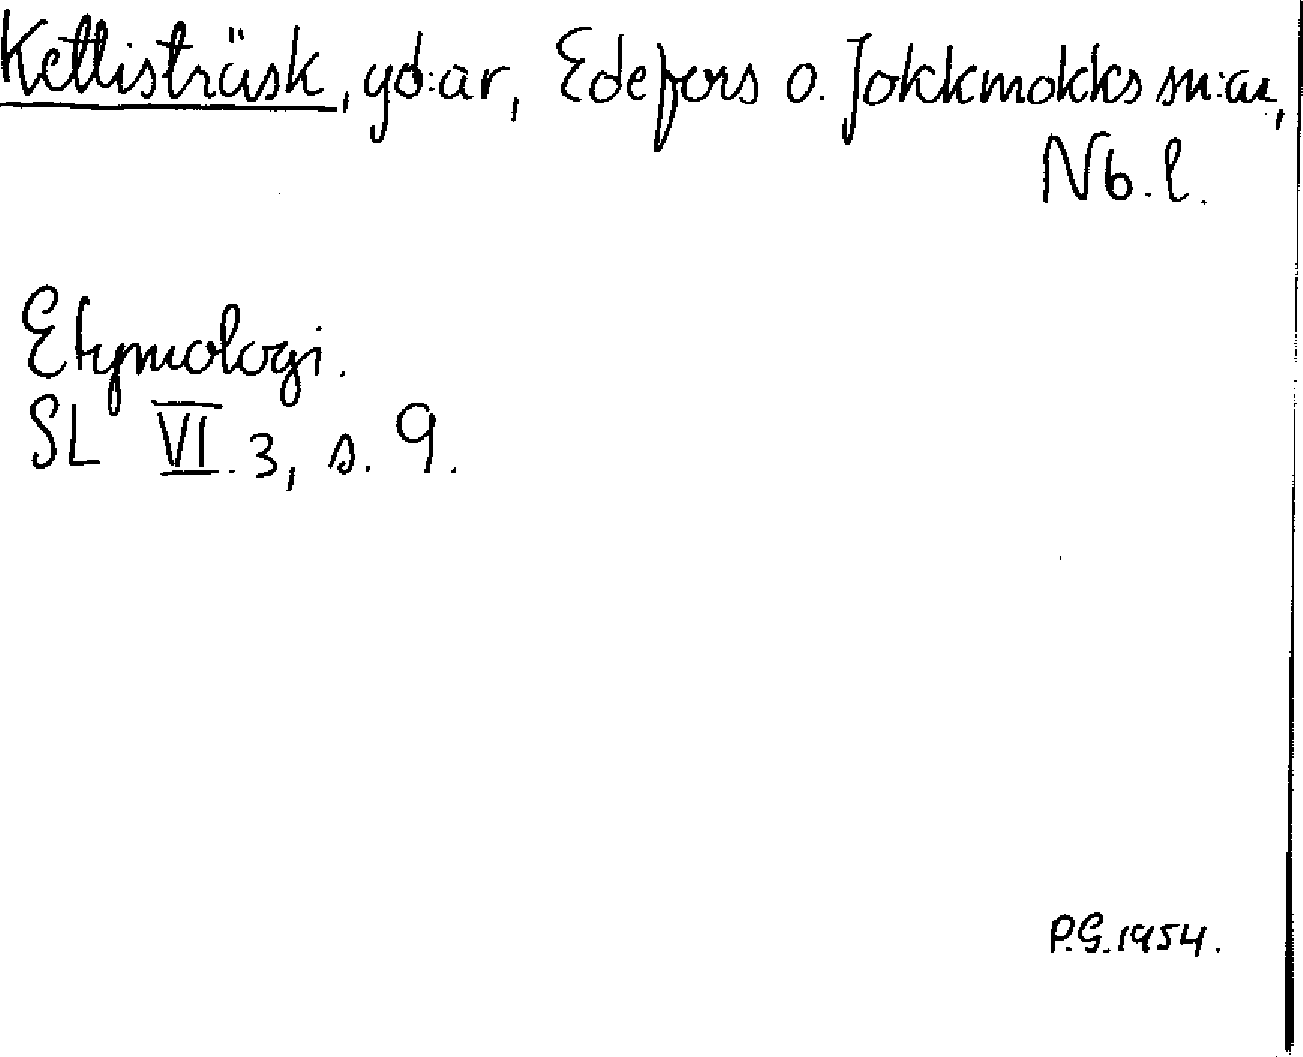 Kettisträsk, gd:ar, Edefors o. Jokkmokks sn:ar,
Nb. l.
Etymologi.
SL VI. 3, s. 9.
P.G. 1954.